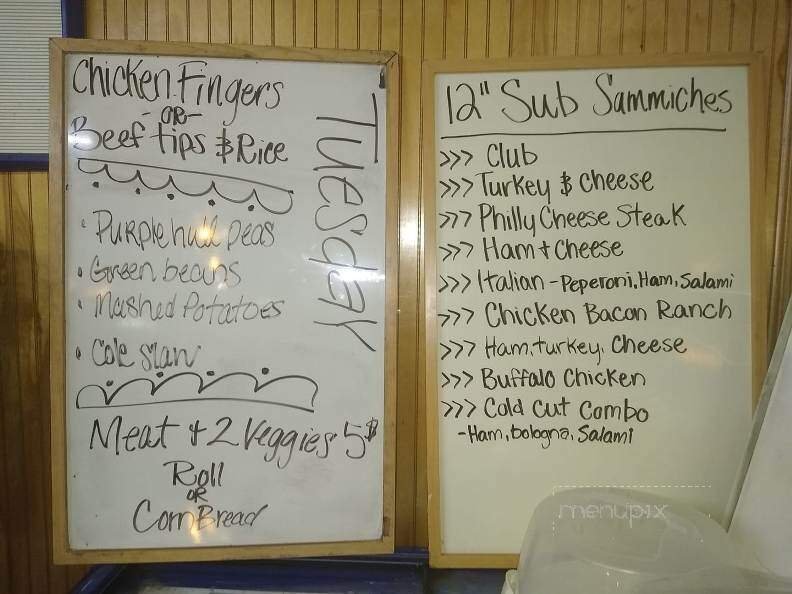 Chicken Fingers
-OR-
Beef tips & Rice
Tuesday
• Purple hull peas
• Green beans
• Mashed Potatoes
• Cole slaw
Meat + 2 Veggies 5$
Roll
OR
CornBread
12" Sub Sammiches
>>> Club
>>> Turkey & Cheese
>>> Philly Cheese Steak
>>> Ham + Cheese
>>> Italian - Peperoni, Ham, Salami
>>> Chicken Bacon Ranch
>>> Ham, turkey, Cheese
>>> Buffalo Chicken
>>> Cold Cut Combo
- Ham, bologna, Salami
menupix